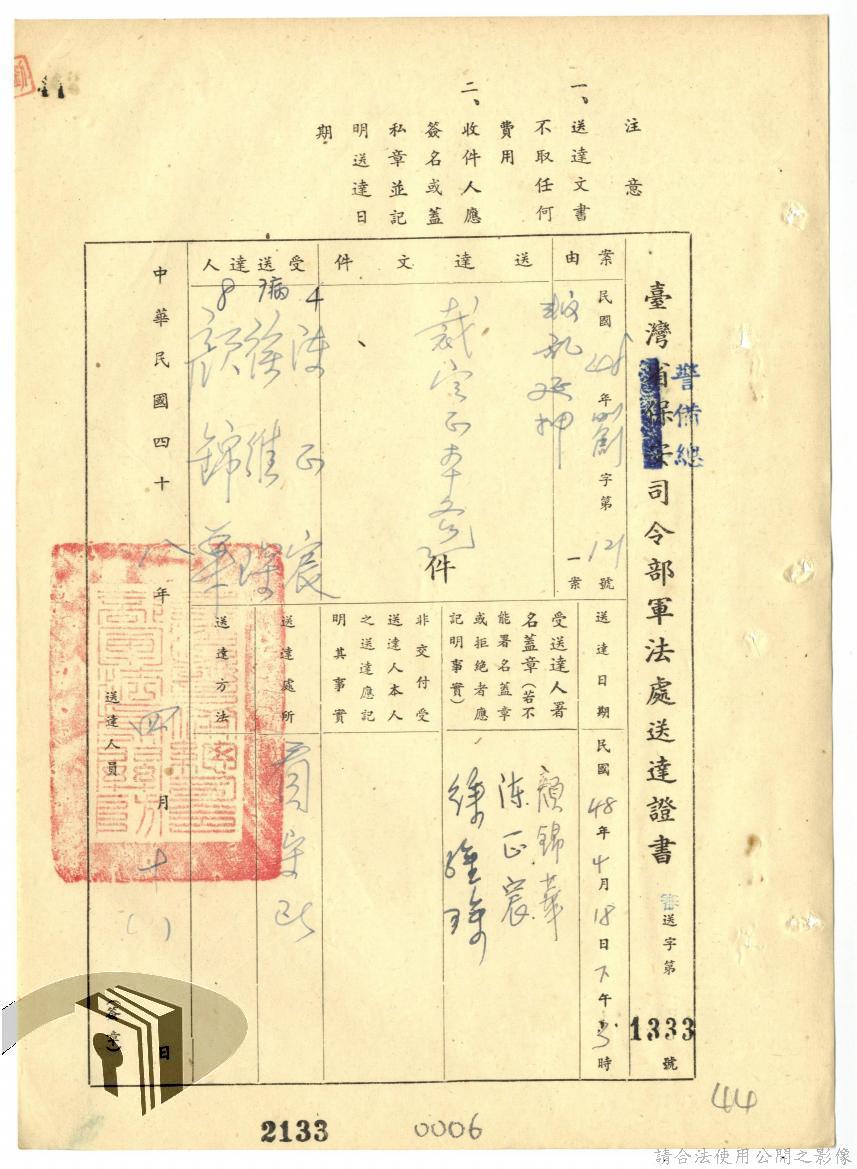 注意
一、送達文書
不取任何
費用
二、收件人應
簽名或蓋
私章並記
明送達日
期
臺灣省保安司令部軍法處送達證書
警備總
審送字第1333號
案由
民國48年 字第121號
一案
叛亂延押
送達文件
裁定正本各 件
受送達人
4 陳正宸
病 徐維琛
8 顏錦華
送達日期
民國48年4月18日下午3時
受送達人署
名蓋章(若不
能署名蓋章
或拒絕者應
記明事實)
顏錦華
陳正宸
徐維琛
非交付受
送達人本人
之送達應記
明其事實
送達處所
看守所
送達方法
中華民國四十八年四月十八日
送達人員
(簽章)
2133
0006
44
請合法使用公開之影像